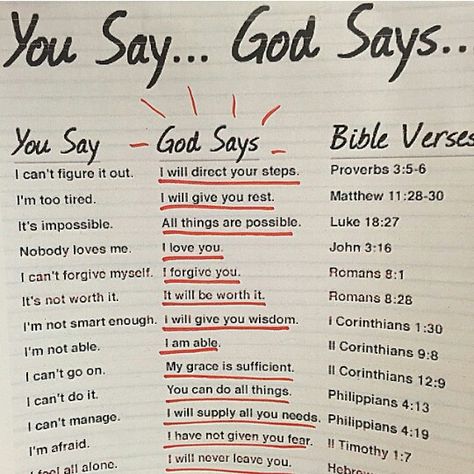 You Say... God Says..
You Say God Says Bible Verses
I can't figure it out. I will direct your steps. Proverbs 3:5-6
I'm too tired. I will give you rest. Matthew 11:28-30
It's impossible. All things are possible. Luke 18:27
Nobody loves me. I love you. John 3:16
I can't forgive myself. I forgive you. Romans 8:1
It's not worth it. It will be worth it. Romans 8:28
I'm not smart enough. I will give you wisdom. I Corinthians 1:30
I'm not able. I am able. II Corinthians 9:8
I can't go on. My grace is sufficient. II Corinthians 12:9
I can't do it. You can do all things. Philippians 4:13
I can't manage. I will supply all you needs. Philippians 4:19
I'm afraid. I have not given you fear. II Timothy 1:7
I feel all alone. I will never leave you. Hebrew